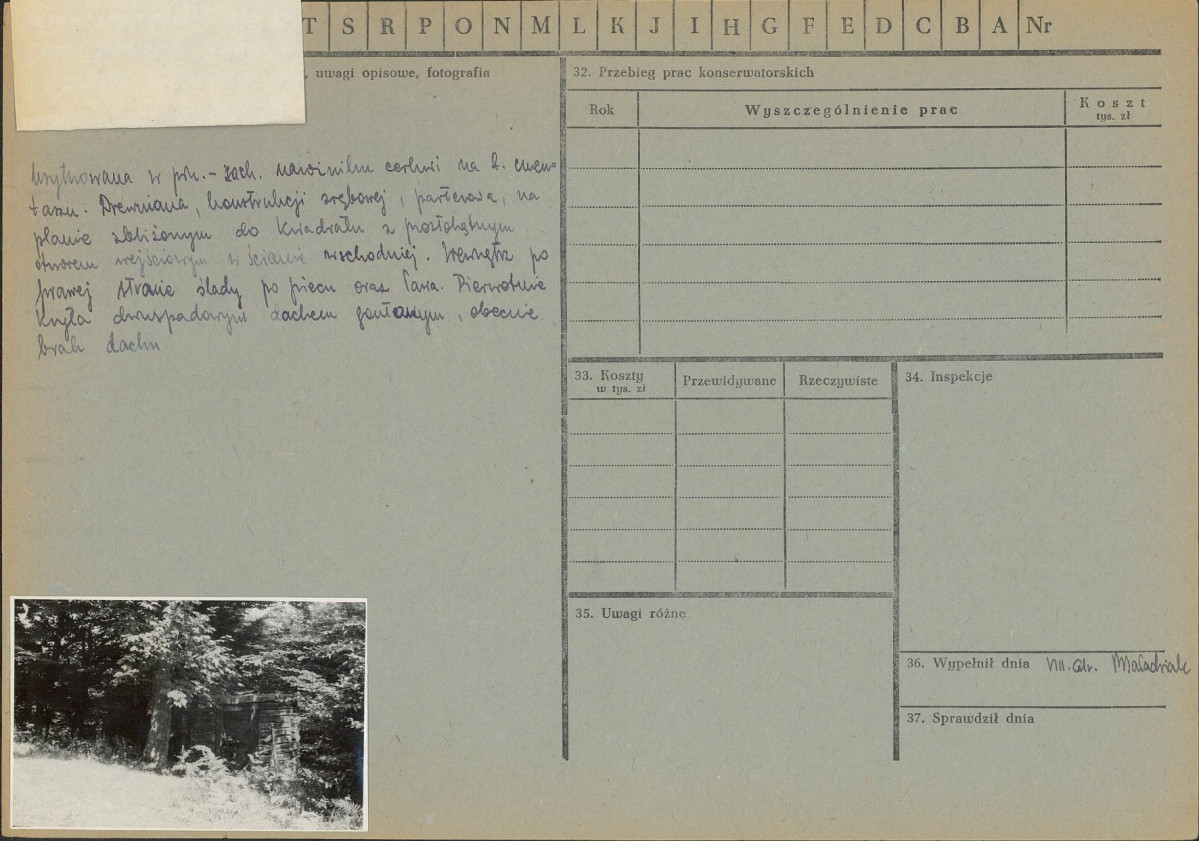 T S R P O N M L K J I H G F E D C B A Nr
uwagi opisowe, fotografia
Usytuowana w płn.-zach. narożniku cerkwi na t. cmen=
tarzu. Drewniana, konstrukcji zrębowej, parterowa, na
planie zbliżonym do kwadratu z prostokątnym
otworem wejściowym w ścianie wschodniej. Wewnątrz po
prawej stronie ślady po piecu oraz ława. Pierwotnie
kryta dwuspadowym dachem gontowym, obecnie
brak dachu
32. Przebieg prac konserwatorskich
Rok
Wyszczególnienie prac
Koszt
tys. zł
33. Koszty
w tys. zł
Przewidywane
Rzeczywiste
34. Inspekcje
35. Uwagi różne
36. Wypełnił dnia VIII.
37. Sprawdził dnia